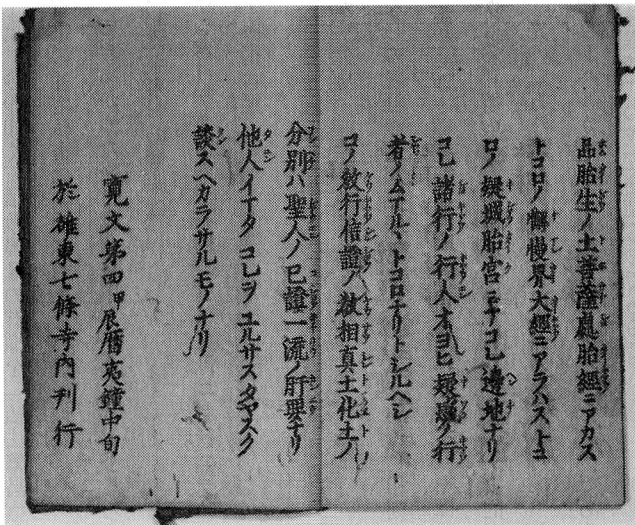 品胎生ノ土菩薩處胎經ニアカス
トコロノ懈慢界大經ニアラハストコ
ロノ疑城胎宮ミナコレ邊地ナリ
コレ諸行ノ行人オヨヒ疑惑ノ行
者ノムマルヽトコロナリトシルヘシ
コノ教行信證ノ教相真土化土ノ
分別ハ聖人ノ已證一流ノ肝要ナリ
他人イマタコレヲユルサスタヤスク
談スヘカラサルモノナリ
寛文第四甲辰暦夷鐘中旬
於雒東七條寺內刊行